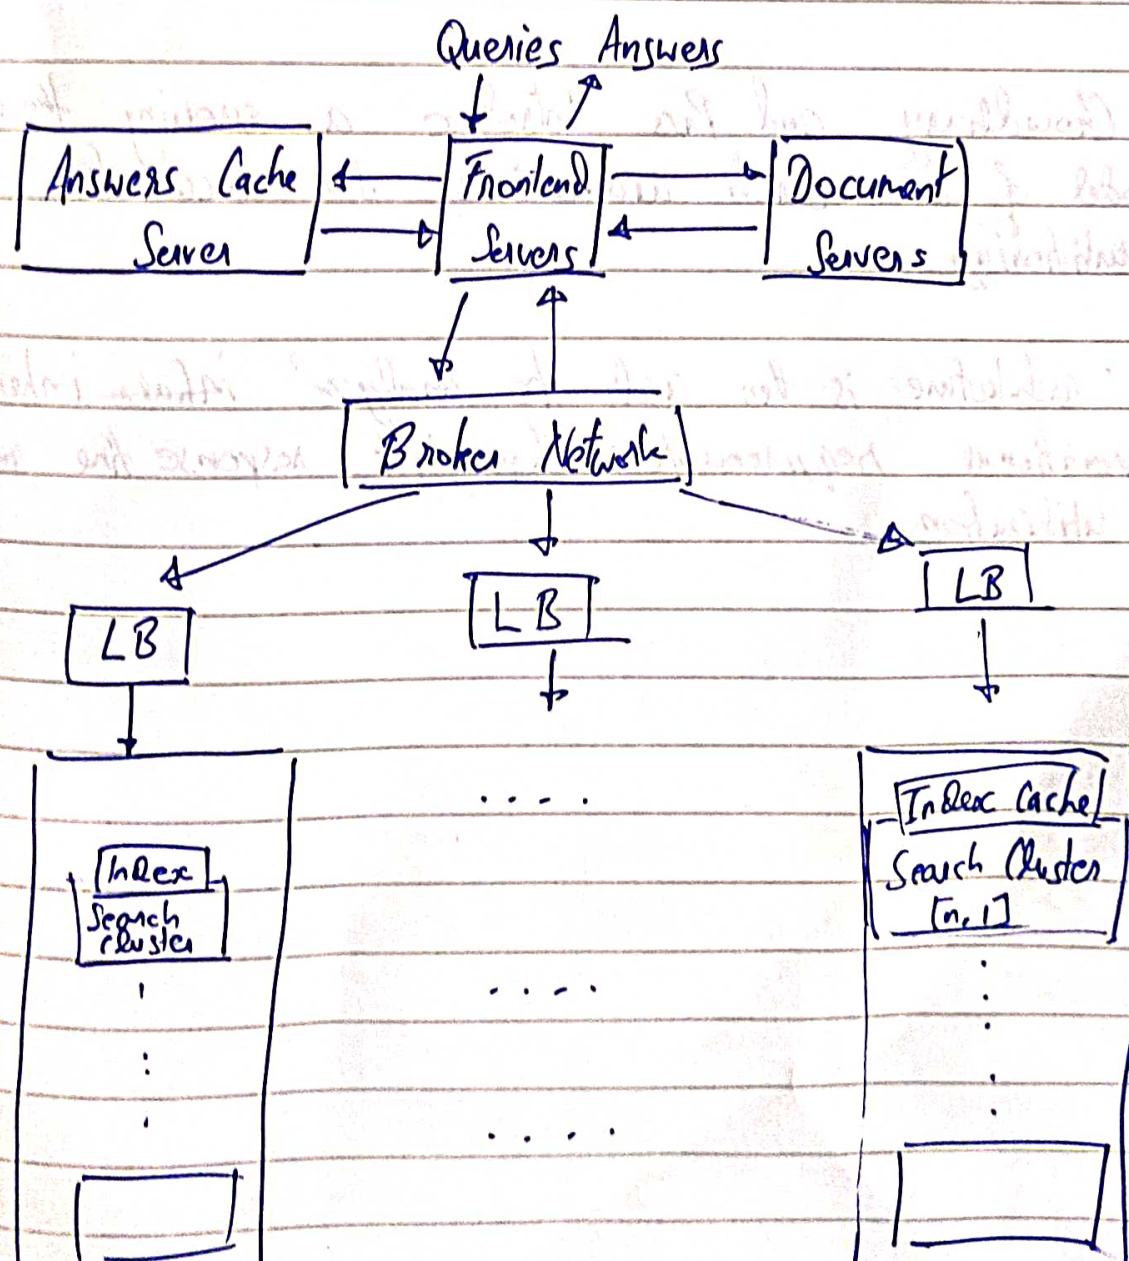 Queries Answers
Answers Cache
Server
Frontend
Servers
Document
Servers
Broker Network
LB
LB
LB
Index
Search
cluster
Index Cache
Search Cluster
[n, 1]